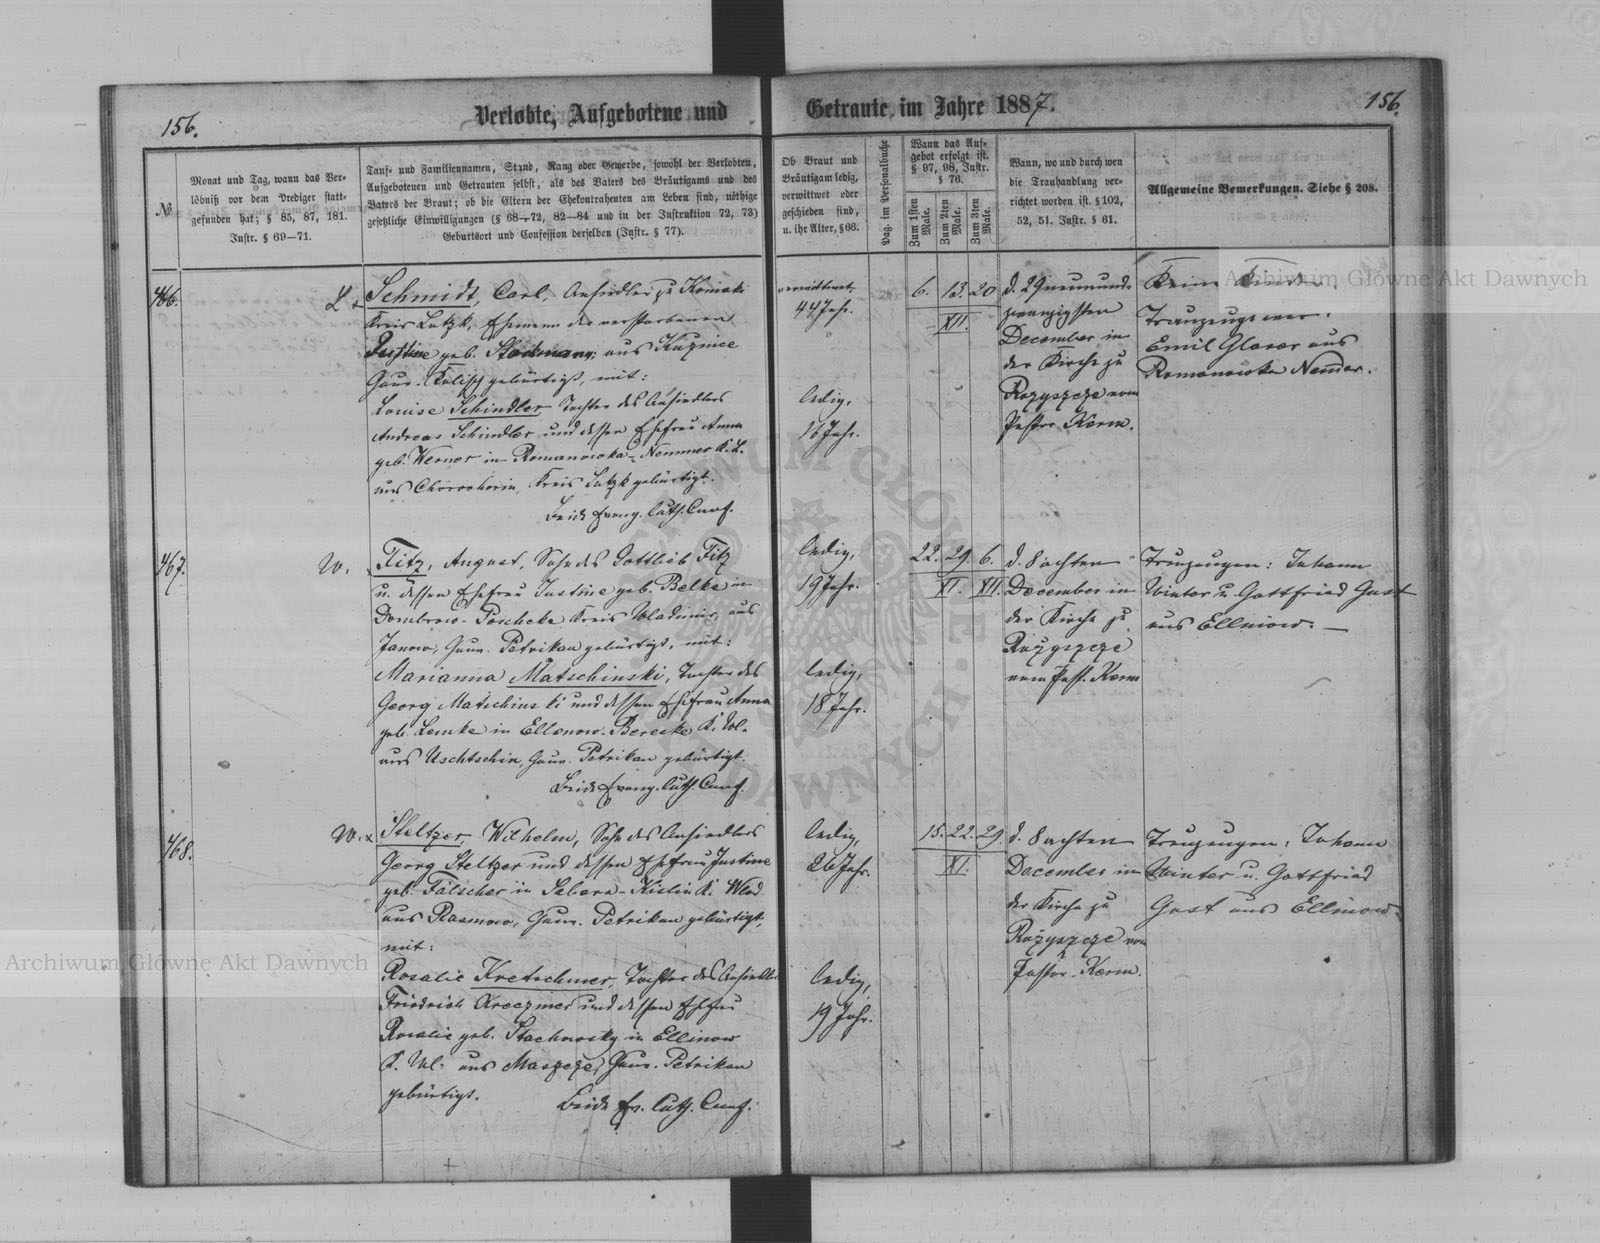 156.
Verlobte, Aufgebotene und
Getraute im Jahre 1887.
156.
№
Monat und Tag, wann das Ver-
löbniß vor dem Prediger statt-
gefunden hat; § 85, 87, 181.
Instr. § 69—71.
Tauf- und Familiennamen, Stand, Rang oder Gewerbe, sowohl der Verlobten,
Aufgebotenen und Getrauten selbst, als des Vaters des Bräutigams und des
Vaters der Braut; ob die Eltern der Ehekontrahenten am Leben sind, nöthige
gesetzliche Einwilligungen (§ 68—72, 82—84 und in der Instruktion 72, 73)
Geburtsort und Confession derselben (Instr. § 77).
Ob Braut und
Bräutigam ledig,
verwittwet oder
geschieden sind,
u. ihr Alter, § 66.
Pag. im Personalbuche
Wann das Auf-
gebot erfolgt ist.
§ 97, 98, Instr.
§ 76.
Zum 1sten
Male.
Zum 2ten
Male.
Zum 3ten
Male.
Wann, wo und durch wen
die Trauhandlung ver-
richtet worden ist. § 102,
52, 51. Instr. § 61.
Allgemeine Bemerkungen. Siehe § 208.
466.
L
Schmidt, Carl, Ansiedler zu Koniaki
Kreis Lutzk, Ehemann der verstorbenen
Justine geb. Stockmann; aus Kuznice
Gouv. Kalisch gebürtigt, mit:
Louise Schindler Tochter des Ansiedlers
Andreas Schindler und dessen Ehefrau Anna
geb. Werner in Romanowka-Nemmer K. L.
aus Chorochorin, Kreis Lutzk gebürtigt.
Beide Evang. Luth. Conf.
verwittwet,
44 Jahr.
ledig,
16 Jahr.
6. 13. 20
XII.
d. 29 neunund-
zwanzigsten
December in
der Kirche zu
Rozyszcze vom
Pastor Kerm.
Trauzeuge war:
Emil Glaser aus
Romanowka Nemer.
467.
W.
Titz, August, Sohn des Gottlieb Titz
u. dessen Ehefrau Justine geb. Belke in
Dombrow-Poscheke Kreis Wladimir, aus
Janow, Gouv. Petrikau gebürtigt, mit:
Marianna Matschinski, Tochter des
Georg Matschinski und dessen Ehefrau Anna
geb. Lemke in Ellenow-Bereske K. Wl.
aus Uschtschin, Gouv. Petrikau gebürtigt.
Beide Evang. Luth. Conf.
ledig,
19 Jahr.
ledig,
18 Jahr.
22. 29. 6.
XI. XII.
d. 8 achten
December in
der Kirche zu
Rozyszcze
vom Past. Kerm
Trauzeugen: Johann
Winter u. Gottfried Gast
aus Ellinow. —
468.
W. x
Steltzer, Wilhelm, Sohn des Ansiedlers
Georg Steltzer und dessen Ehefrau Justine
geb. Fälscher in Sabera-Kislin K. Wlad
aus Rasmow, Gouv. Petrikau gebürtigt,
mit:
Rosalie Kretschmer, Tochter des Ansiedlers
Friedrich Kreczmer und dessen Ehefrau
Rosalie geb. Stachowsky in Ellinow
K. Wl. aus Maszcze, Gouv. Petrikau
gebürtigt.
Beide Ev. Luth. Conf.
ledig,
26 Jahr.
ledig,
19 Jahr.
15. 22. 29.
XI.
d. 8 achten
December in
der Kirche zu
Rozyszcze vom
Pastor Kerm.
Trauzeugen: Johann
Winter u. Gottfried
Gast aus Ellinow.
Archiwum Główne Akt Dawnych
Archiwum Główne Akt Dawnych
ARCHIWUM GŁÓWNE
AKT DAWNYCH